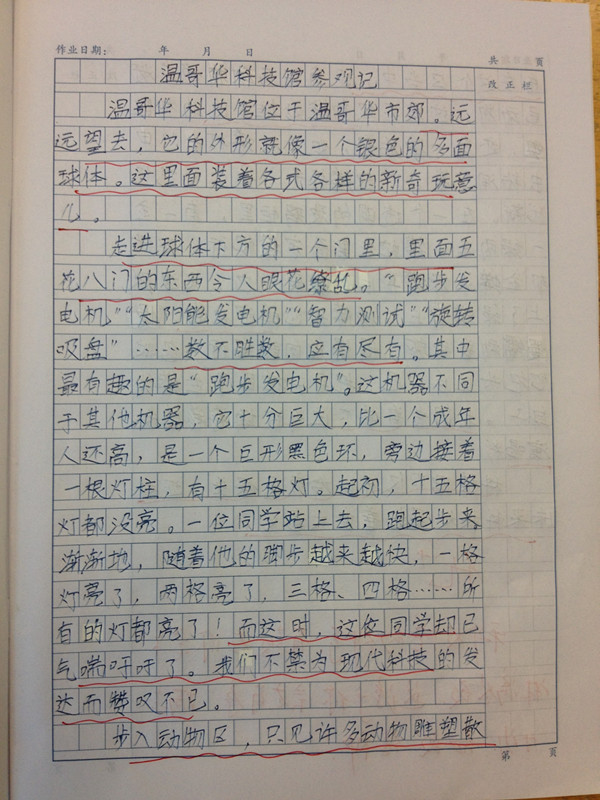 作业日期： 年 月 日 共 页
改正栏
温哥华科技馆参观记
温哥华科技馆位于温哥华市郊。远
远望去，它的外形就像一个银色的多面
球体。这里面装着各式各样的新奇玩意
儿。
走进球体下方的一个门里，里面五
花八门的东西令人眼花缭乱。“跑步发
电机”“太阳能发电机”“智力测试”“旋转
吸盘”……数不胜数，应有尽有。其中
最有趣的是“跑步发电机”。这机器不同
于其他机器，它十分巨大，比一个成年
人还高，是一个巨形黑色环，旁边接着
一根灯柱，有十五格灯。起初，十五格
灯都没亮。一位同学站上去，跑起步来
渐渐地，随着他的脚步越来越快，一格
灯亮了，两格亮了，三格、四格……所
有的灯都亮了！而这时，这位同学却已
气喘吁吁了。我们不禁为现代科技的发
达而赞叹不已。
步入动物区，只见许多动物雕塑散
第 页